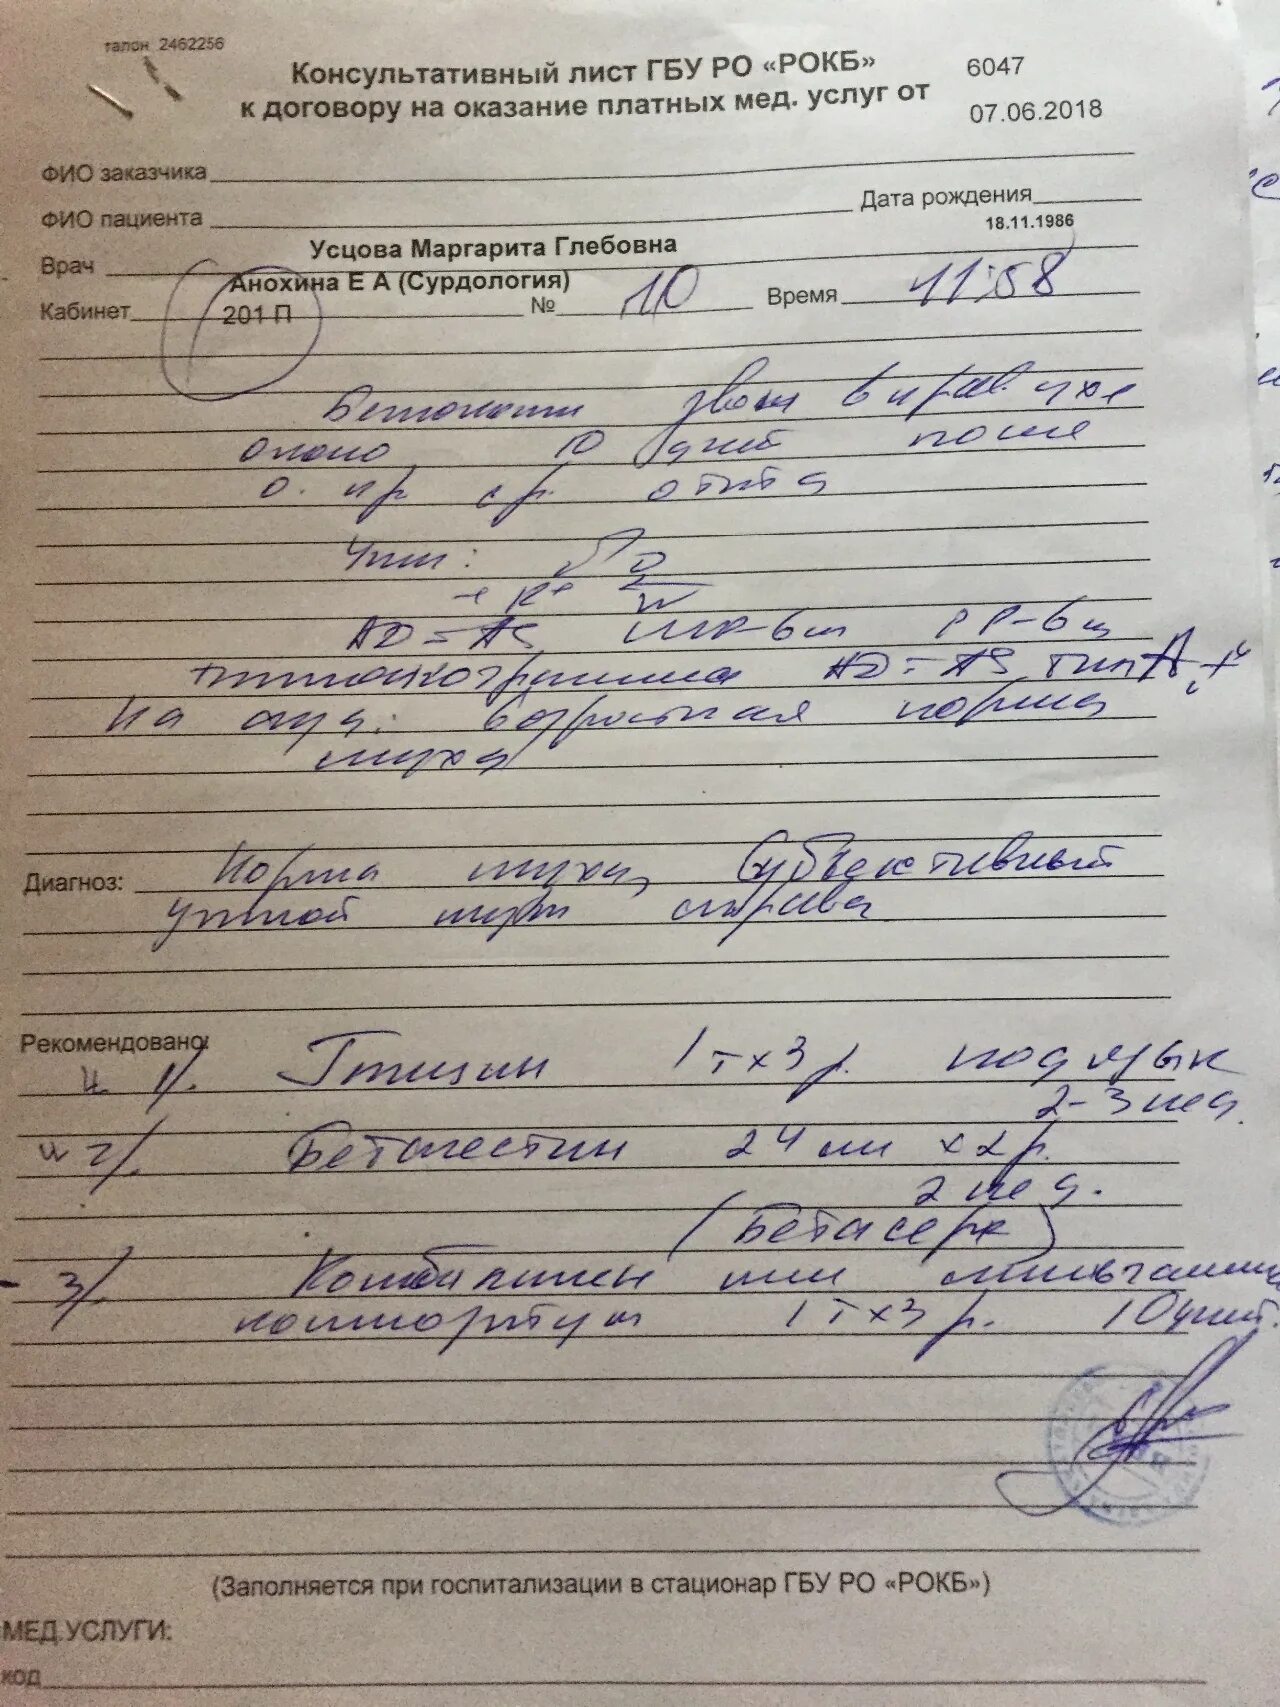 талон 2462256
Консультативный лист ГБУ РО «РОКБ» 6047
к договору на оказание платных мед. услуг от 07.06.2018
ФИО заказчика
ФИО пациента Дата рождения
18.11.1986
Усцова Маргарита Глебовна
Врач
Анохина Е А (Сурдология)
Кабинет 201 П № 10 Время 11:58
звон в прав. ухе
около 10 дней после
о. пр ср. отита
AD = AS ШР-6м РР-6м
тимпанограмма AD = AS тип А
На ауд: возрастная норма
слуха
Диагноз: Норма слуха, Субъективный
ушной шум справа
Рекомендовано:
1/. Глицин 1 т х 3 р. под язык
2-3 нед.
2/. Бетагестин 24 мг х 2 р.
2 нед.
(Бетасерк)
3/. Комбилипен или мильгамма
композитум 1 т х 3 р. 10 дней.
(Заполняется при госпитализации в стационар ГБУ РО «РОКБ»)
МЕД.УСЛУГИ:
код